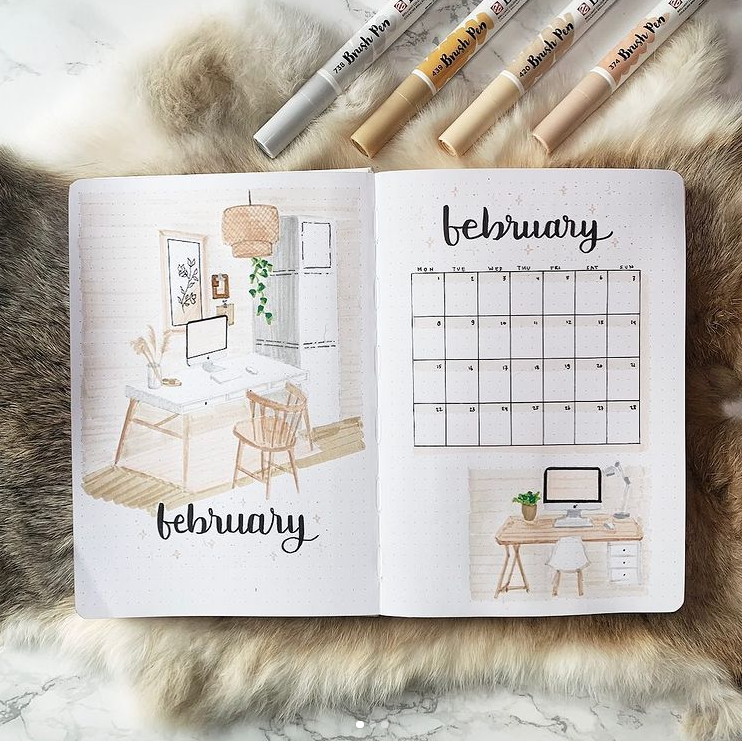 738 Brush Pen
439 Brush Pen
420 Brush Pen
374 Brush Pen
february
february
MON TUE WED THU FRI SAT SUN
1 2 3 4 5 6 7
8 9 10 11 12 13 14
15 16 17 18 19 20 21
22 23 24 25 26 27 28